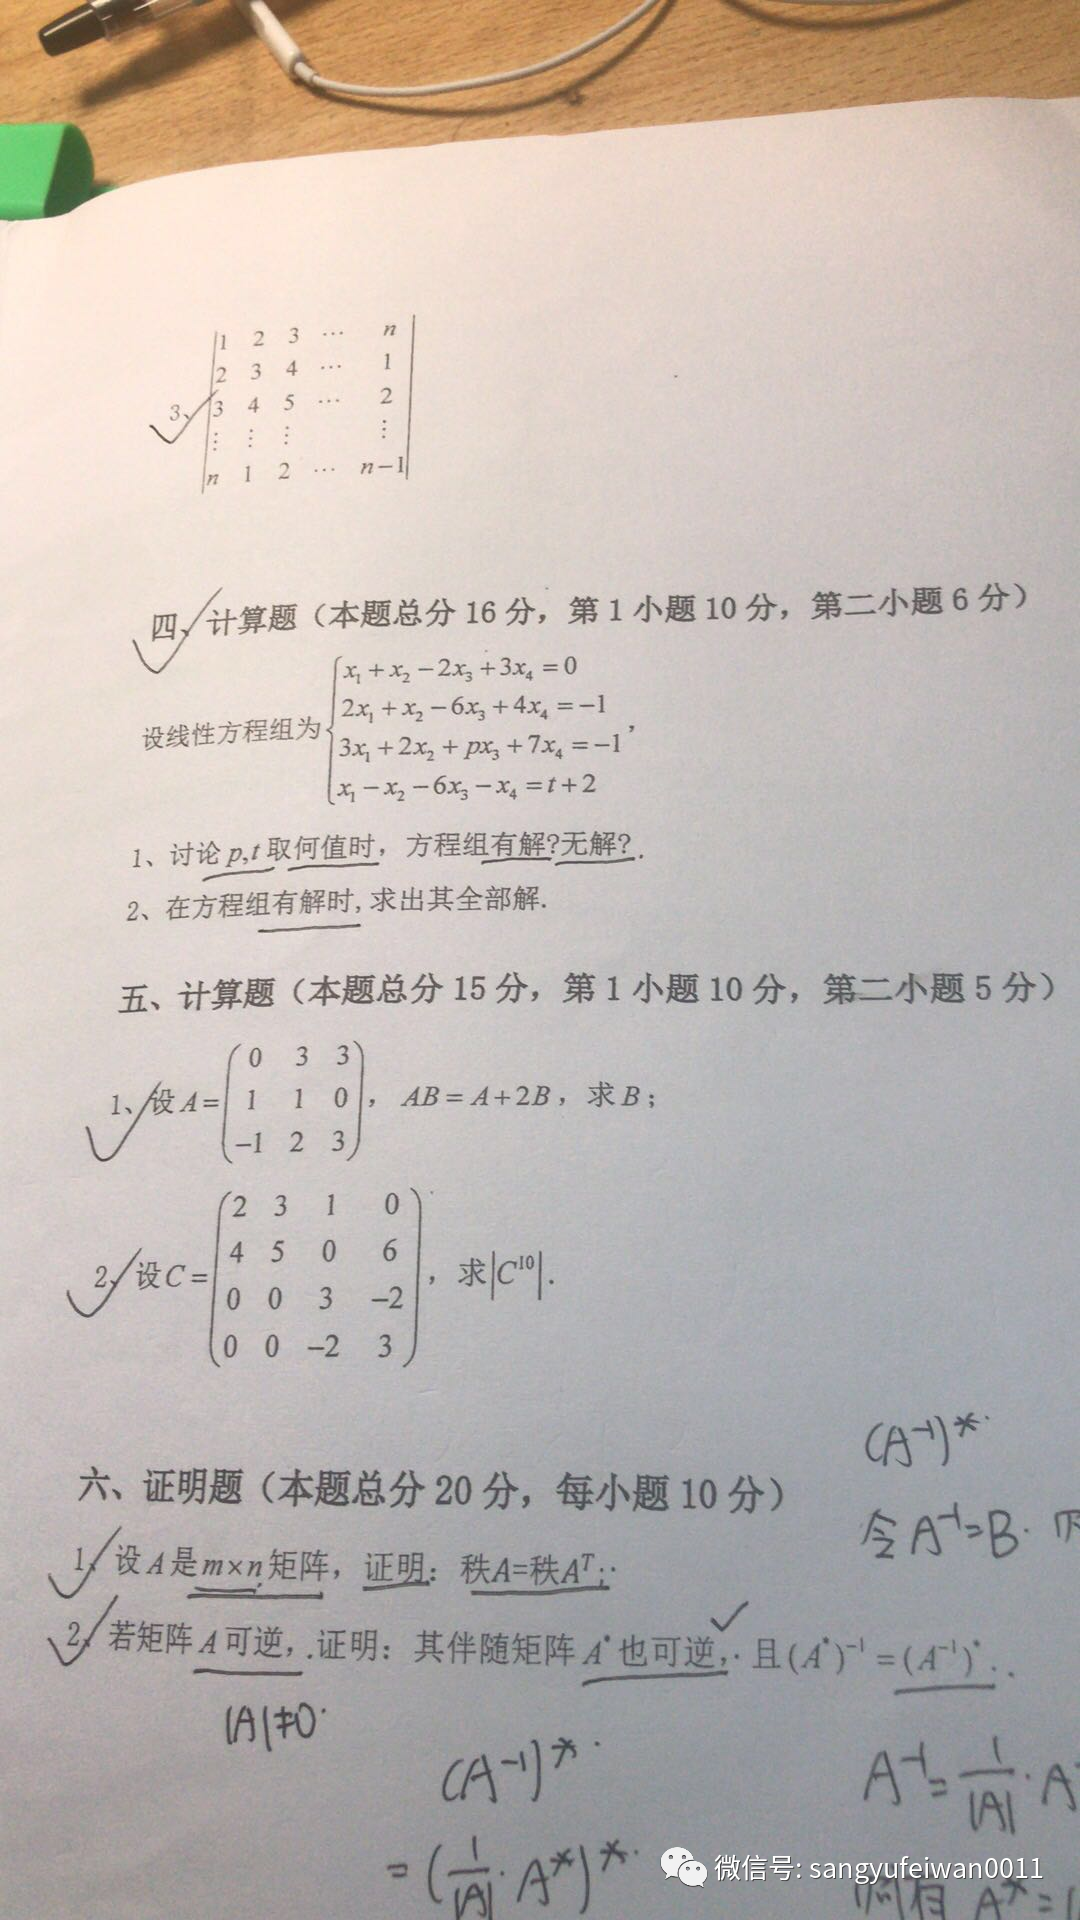 1 2 3 ⋯ n
2 3 4 ⋯ 1
3、 3 4 5 ⋯ 2
⋮ ⋮ ⋮ ⋮
n 1 2 ⋯ n−1
四、计算题（本题总分 16 分，第 1 小题 10 分，第二小题 6 分）
x₁+x₂−2x₃+3x₄=0
2x₁+x₂−6x₃+4x₄=−1
设线性方程组为
3x₁+2x₂+px₃+7x₄=−1 ,
x₁−x₂−6x₃−x₄=t+2
1、讨论 p,t 取何值时，方程组有解?无解?.
2、在方程组有解时,求出其全部解.
五、计算题（本题总分 15 分，第 1 小题 10 分，第二小题 5 分）
0 3 3
1、设 A= 1 1 0 ， AB=A+2B，求 B；
−1 2 3
2 3 1 0
4 5 0 6
2、设 C= ，求|C¹⁰|.
0 0 3 −2
0 0 −2 3
(A⁻¹)*.
六、证明题（本题总分 20 分，每小题 10 分）
令 A⁻¹=B.
1、设 A 是 m×n 矩阵，证明：秩A=秩Aᵀ;.
2、若矩阵 A 可逆，.证明：其伴随矩阵 A* 也可逆，.且 (A*)⁻¹=(A⁻¹)*..
|A|≠0.
(A⁻¹)*.
A⁻¹=1/|A|·A
=(1/|A|·A*)*.
微信号: sangyufeiwan0011
A*=